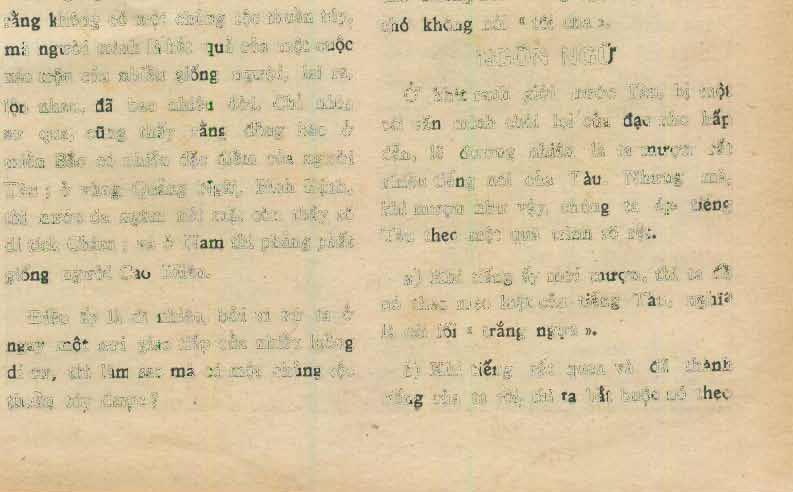 rằng không có một chủng tộc thuần túy,
mà người mình là kết quả của một cuộc
xáo trộn của nhiều giống người, lai ra,
lộn nhau, đã bao nhiêu đời. Chỉ nhìn
sơ qua, cũng thấy rằng đồng bào ở
miền Bắc có nhiều đặc điểm của người
Tàu ; ở vùng Quảng Ngãi, Bình Định,
thì nước da ngăm nét mặt còn thấy rõ
di tích Chàm ; và ở Nam thì phảng phất
giống người Cao Miên.
Điều ấy là dĩ nhiên, bởi vì xứ ta ở
ngay một nơi giao tiếp của nhiều luồng
di cư, thì làm sao mà có một chủng tộc
thuần túy được ?
chó không nói « tôi cha ».
NGÔN NGỮ
Ở khít ranh giới nước Tàu, bị một
cái văn minh chói lọi của đạo nho hấp
dẫn, lẽ đương nhiên là ta mượn rất
nhiều tiếng nói của Tàu. Nhưng mà,
khi mượn như vậy, chúng ta áp tiếng
Tàu theo một quá trình rõ rệt.
a) Khi tiếng ấy mới mượn, thì ta để
nó theo mẹo luật của tiếng Tàu, nghĩa
là cái lối « trắng ngựa ».
b) Khi tiếng rất quen và đã thành
tiếng của ta rồi, thì ta bắt buộc nó theo